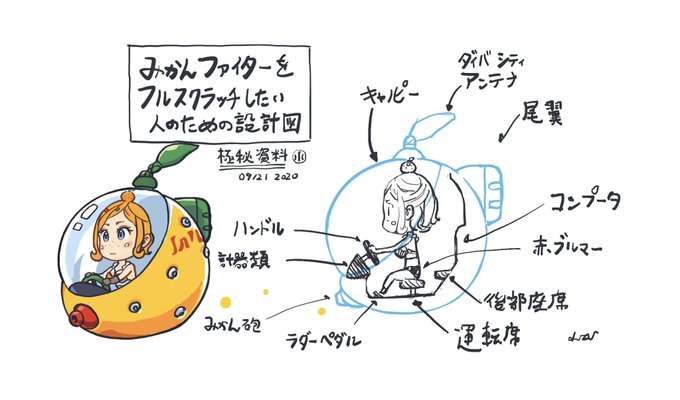 みかんファイターを
フルスクラッチしたい
人のための設計図
極秘資料
09/21 2020
ダイバシティ
アンテナ
キャノピー
尾翼
ハンドル
計器類
コンプータ
赤ブルマー
みかん砲
ラダーペダル
運転席
後部座席